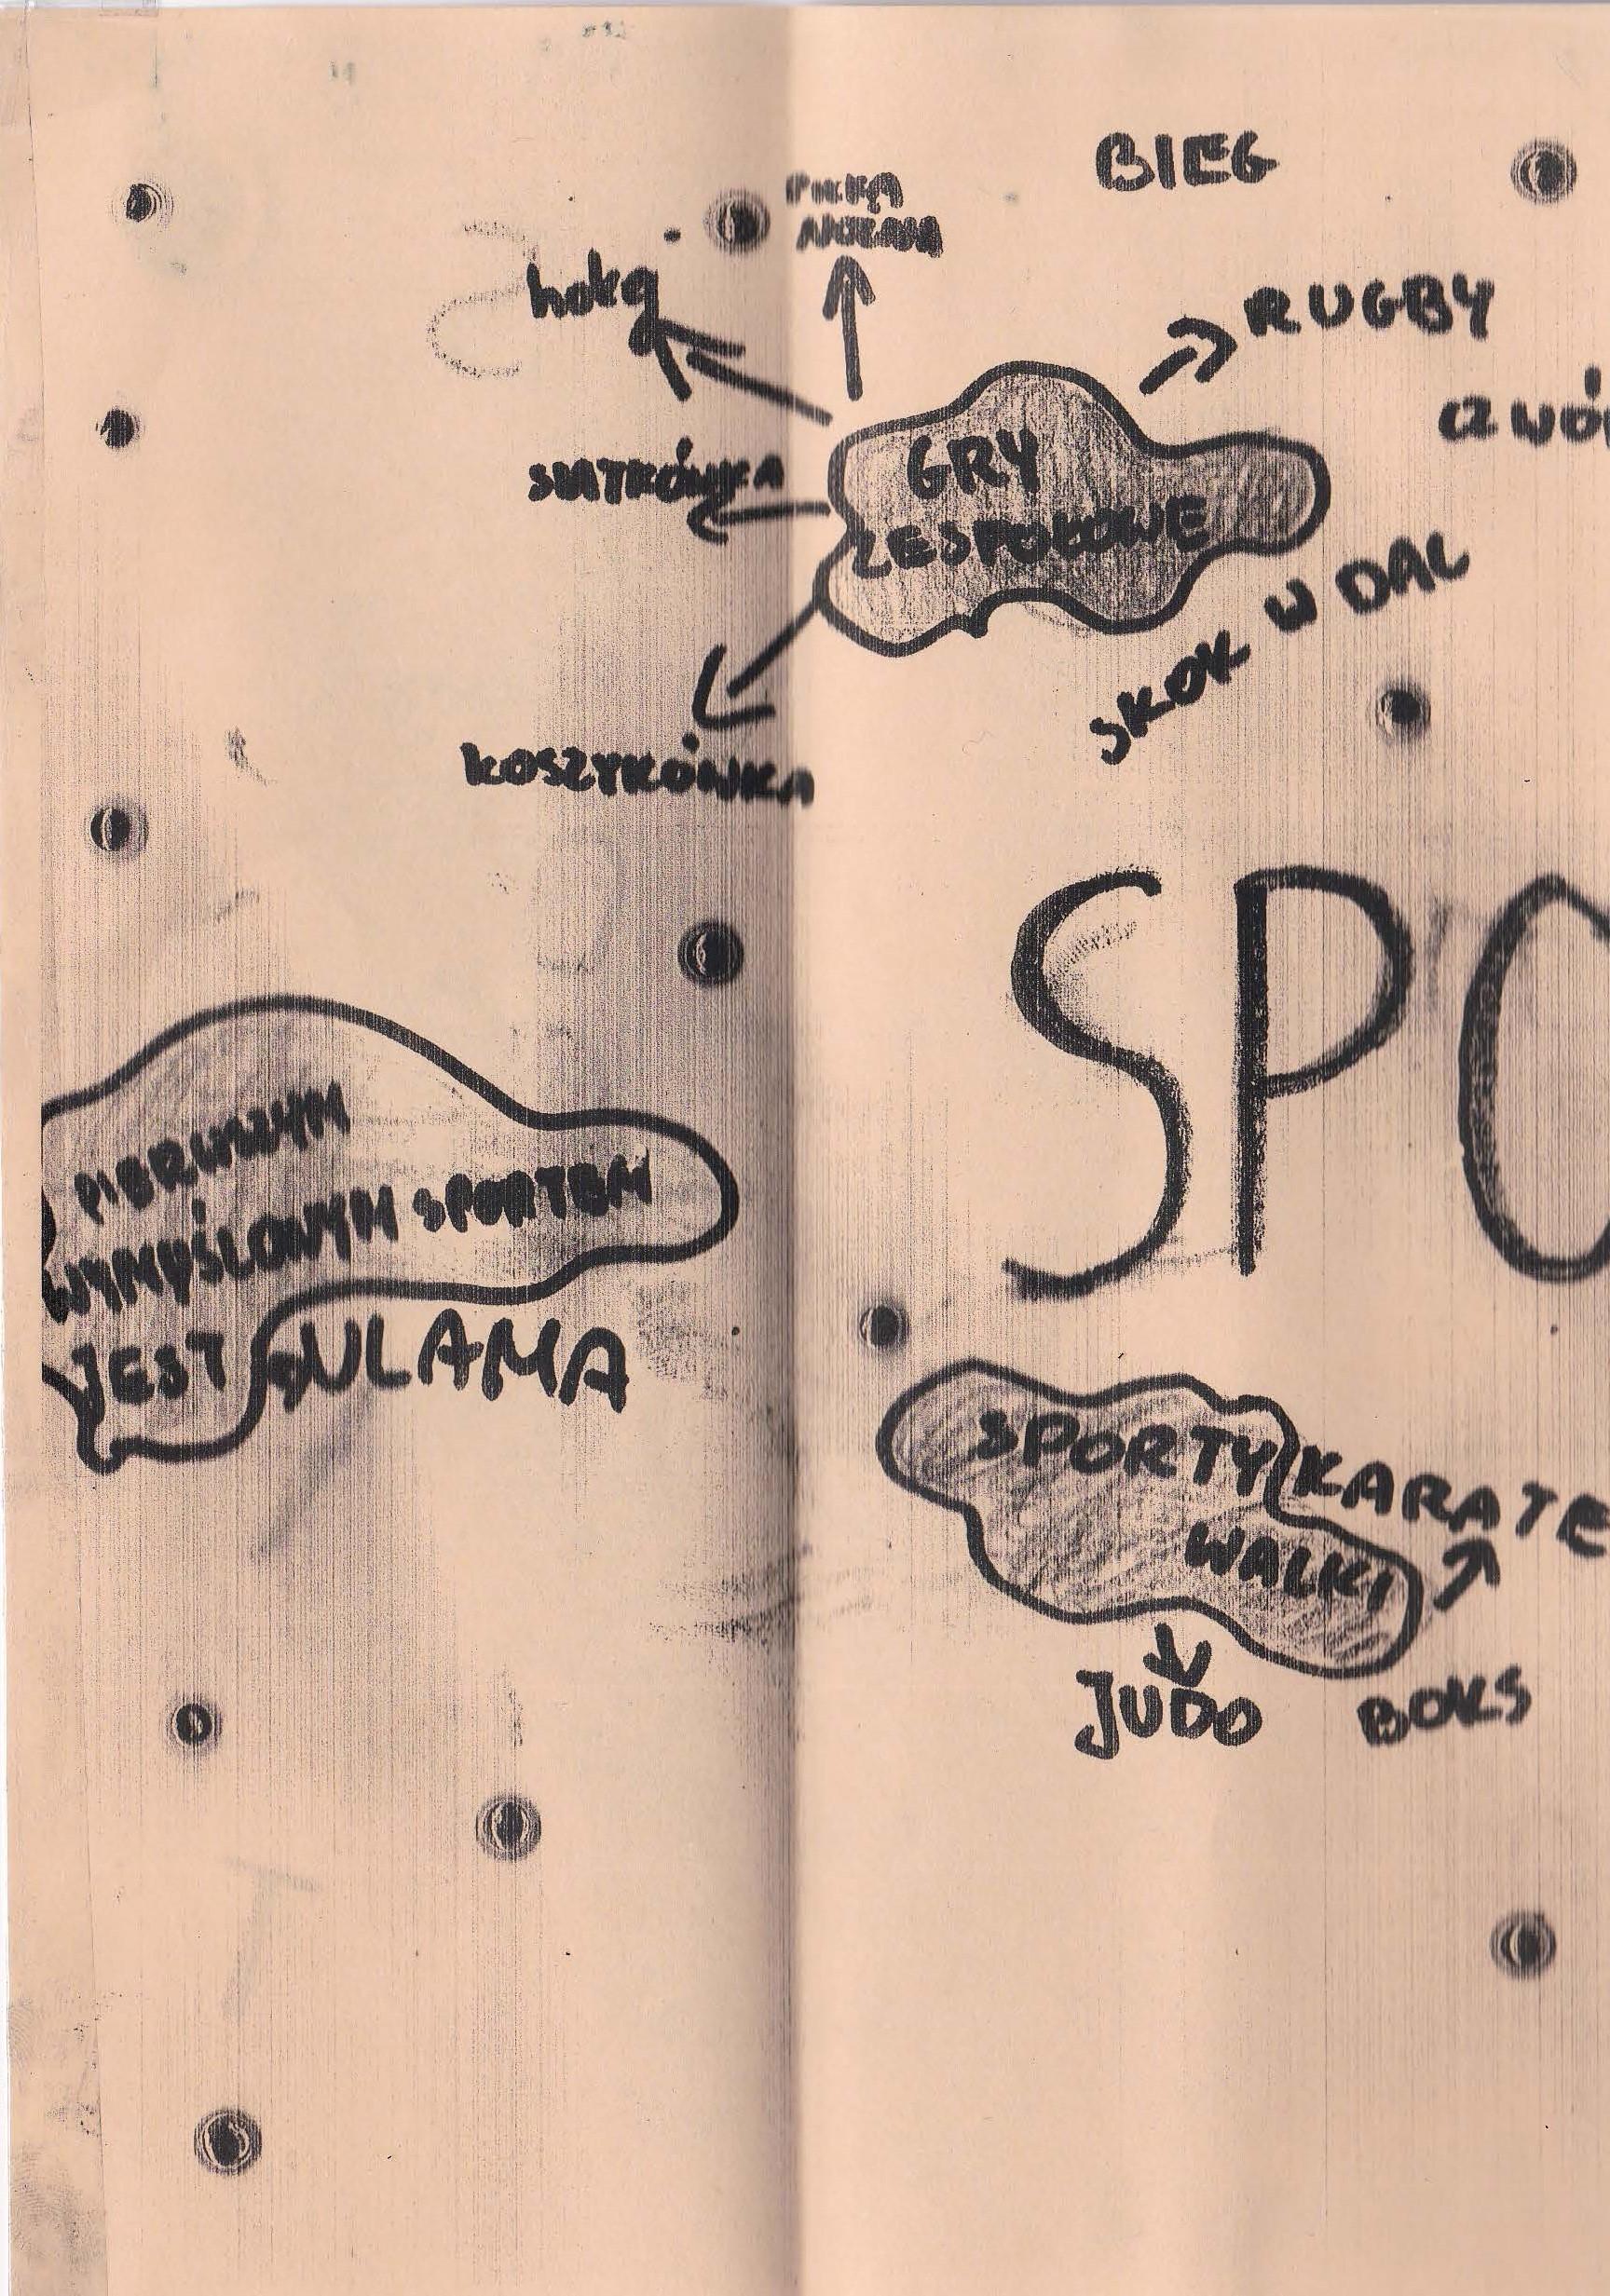 BIEG
PIŁKA
NOŻNA
hokej
RUGBY
SIATKÓWKA
GRY
ZESPOŁOWE
SKOK W DAL
KOSZYKÓWKA
SPO
PIERWSZYM
WYMYŚLONYM SPORTEM
JEST ULAMA
SPORTY
WALKI
KARATE
JUDO
BOKS